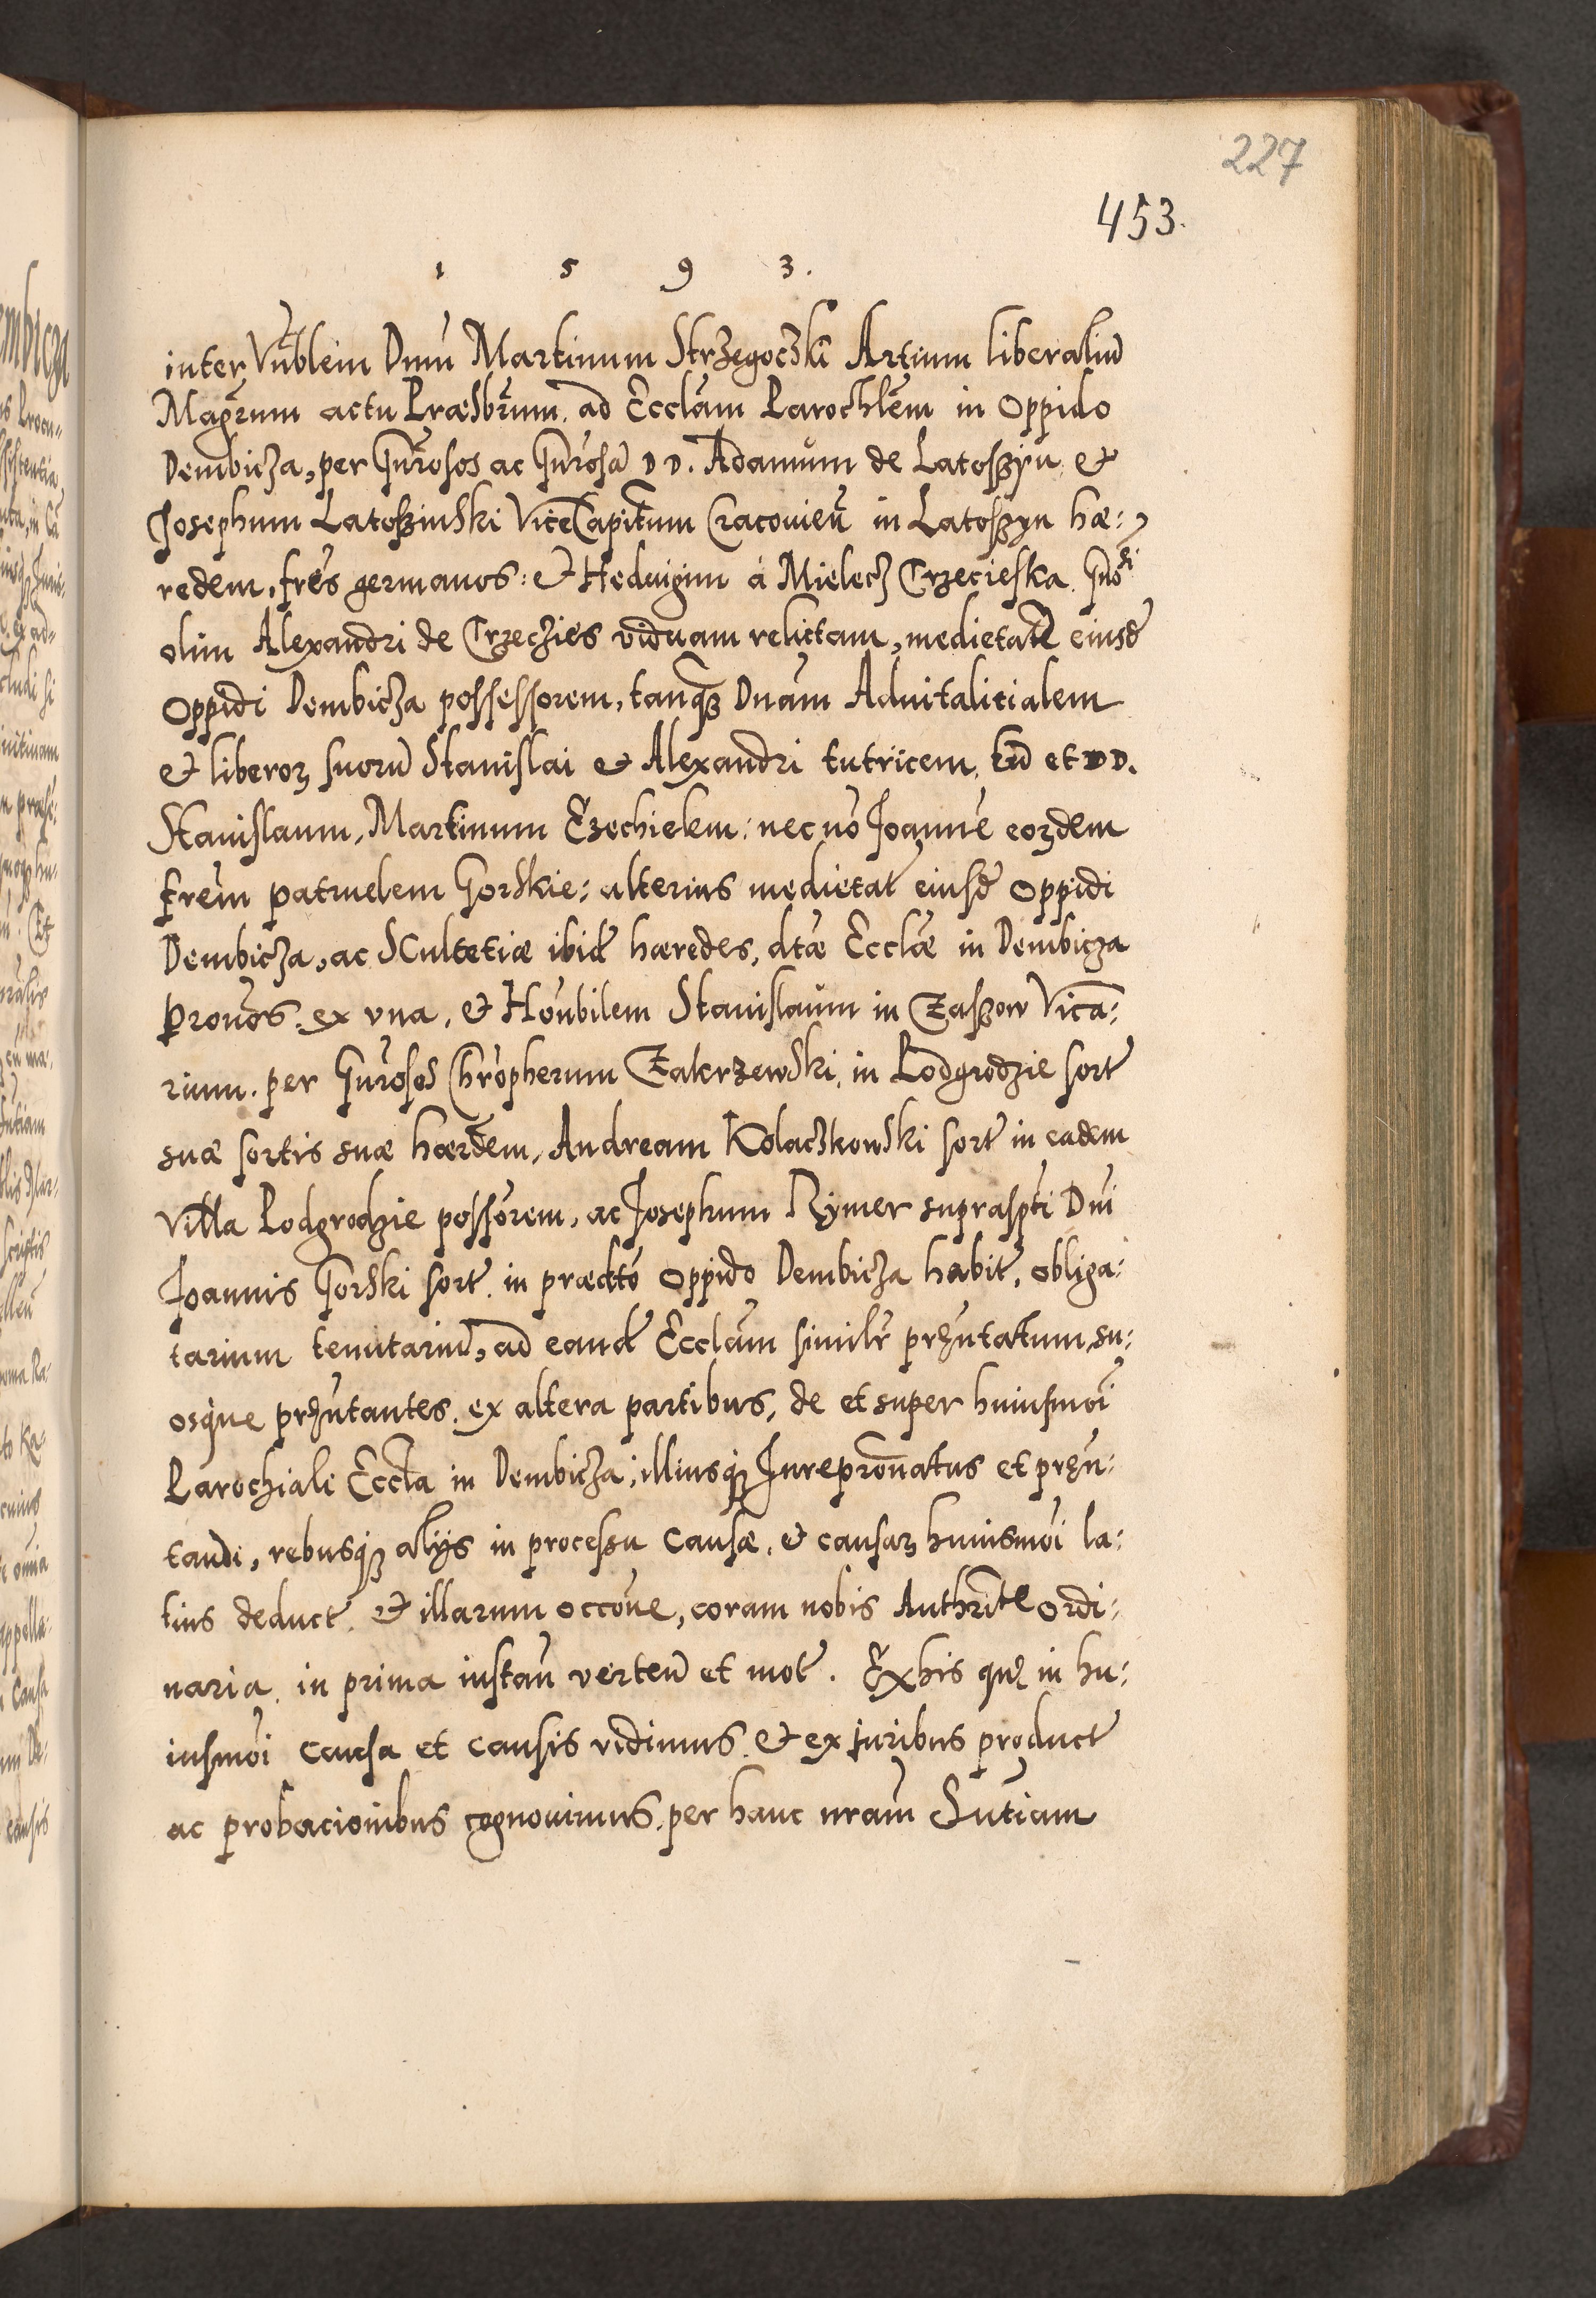 227
453.
1 5 9 3.
inter Vnblem Dnm Martinum Strzegoczki Artium liberaliu
Magrum actu Præsbrum ad Ecclam Parochlem in Oppido
Dembicza, per Gnrosos ac Gnrosa DD. Adamum de Latoszyn et
Josephum Latoszinski ViceCapitum Cracovien in Latoszyn hæ:
redem, fres germanos: et Heduigim á Mielecz Trzecieska Gnosi
olim Alexandri de Trzeczies viduam relictam, medietate eiusd
Oppidi Dembicza possessorem, tanqz Dnam Aduitalitialem
et liberoz suoru Stanislai et Alexandri tutricem, tud et DD.
Stanislaum, Martinum Ezechielem: necno Joanne eozdem
frem patruelem Gorskie: alterius medietat eiusd Oppidi
Dembicza, ac Scultetiæ ibid hæredes, dtæ Ecclæ in Dembicza
Pronos. ex vna, et Honbilem Stanislaum in Zaszow Vica:
rium. per Gnrosos Chropherum Zakrzewski, in Podgrodzie sort
suæ sortis suæ hærdem, Andream Kolaczkowski sort in eadem
Villa Podgrodzie possorem, ac Josephum Rymer supraspti Dni
Joannis Gorski sort in prædto Oppido Dembicza habit, obliga:
tarium tenutariu, ad eand Ecclam similr przntatum su:
osque przntantes, ex altera partibus, de et super huiusmoi
Parochiali Eccla in Dembicza, illiusqz Jurepronatus et przn:
tandi, rebusqz alijs in processu causæ, et causaz huiusmoi la:
tius deduct et illarum occone, coram nobis Authrite Ordi:
naria in prima instan verten et mot. Ex his quæ in hu:
iusmoi causa et causis vidimus, et ex juribus product
ac probacionibus cognouimus, per hanc nram Sntiam